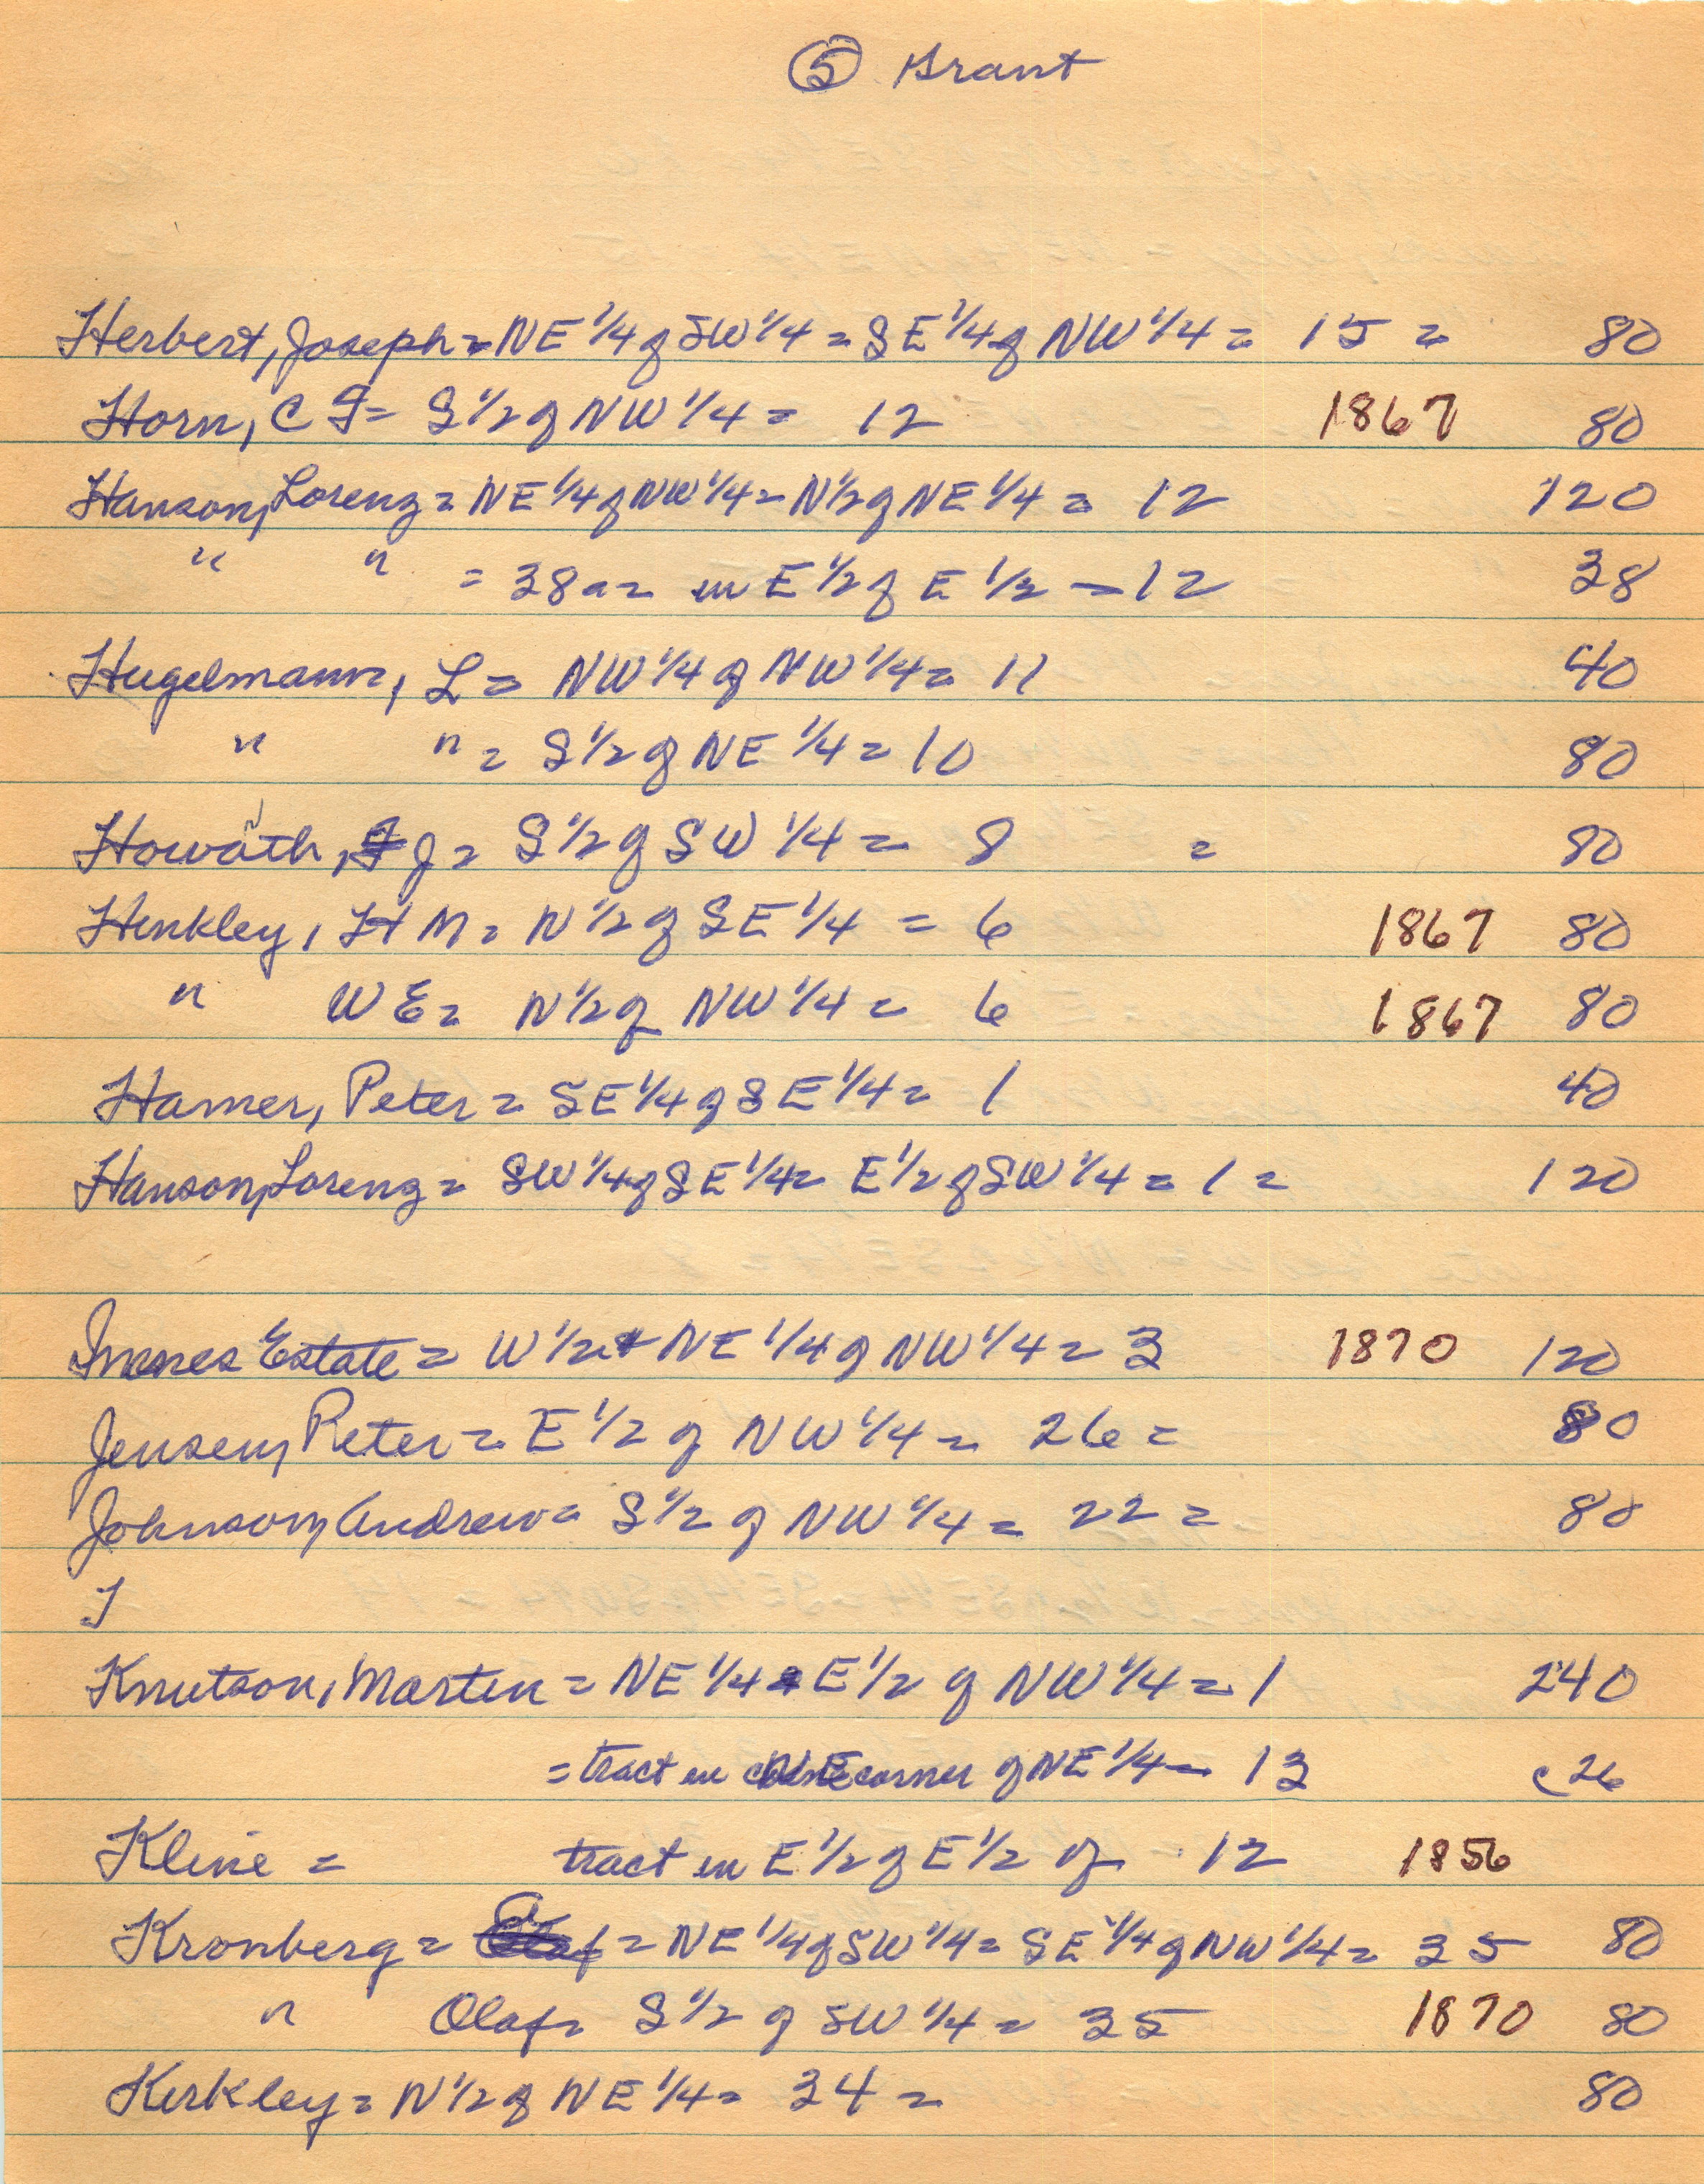 ⑤ Grant
Herbert, Joseph = NE 1/4 of SW 1/4 = SE 1/4 of NW 1/4 = 15 = 80
Horn, C F = S 1/2 of NW 1/4 = 12 1867 80
Hanson, Lorenz = NE 1/4 of NW 1/4 = N 1/2 of NE 1/4 = 12 120
" " = 38 a = in E 1/2 of E 1/2 = 12 38
Hugelmann, L = NW 1/4 of NW 1/4 = 11 40
" " = S 1/2 of NE 1/4 = 10 80
Howath, J = S 1/2 of SW 1/4 = 8 = 80
Henkley, H M = N 1/2 of SE 1/4 = 6 1867 80
" W E = N 1/2 of NW 1/4 = 6 1867 80
Hamer, Peter = SE 1/4 of SE 1/4 = 1 40
Hanson, Lorenz = SW 1/4 of SE 1/4 = E 1/2 of SW 1/4 = 1 = 120
Estate = W 1/2 + NE 1/4 of NW 1/4 = 3 1870 120
Jensen, Peter = E 1/2 of NW 1/4 = 26 = 80
Johnson, Andrew = S 1/2 of NW 1/4 = 22 = 80
J
Knutson, Martin = NE 1/4 & E 1/2 of NW 1/4 = 1 240
= tract in NE corner of NE 1/4 = 13 c 26
Kline = tract in E 1/2 of E 1/2 of 12 1856
Kronberg = = NE 1/4 of SW 1/4 = SE 1/4 of NW 1/4 = 35 80
" Olaf = S 1/2 of SW 1/4 = 35 1870 80
Kerkley = N 1/2 of NE 1/4 = 34 = 80